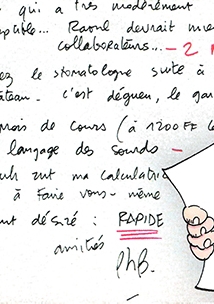 qui a très modérément
ptible... Raoul devrait mie
collaborateurs... – 2 
ez le stomatologue suite à
teau. c'était dégueu, le gar
mois de cours (à 1200FF le
langage des sourds –
uh zut ma calculatric
à faire vous-même
nt désiré : RAPIDE
amitiés
PhB.